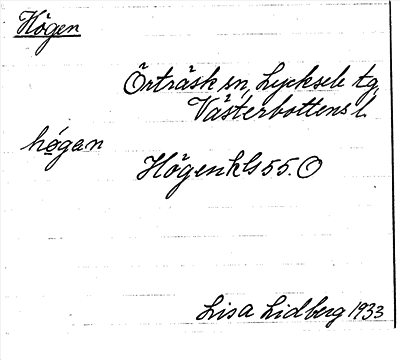 Högen
Örträsk sn, Lycksele tg,
Västerbottens l.
hǫ́gɐn
Högenkls 55. O
Lisa Lidberg 1933